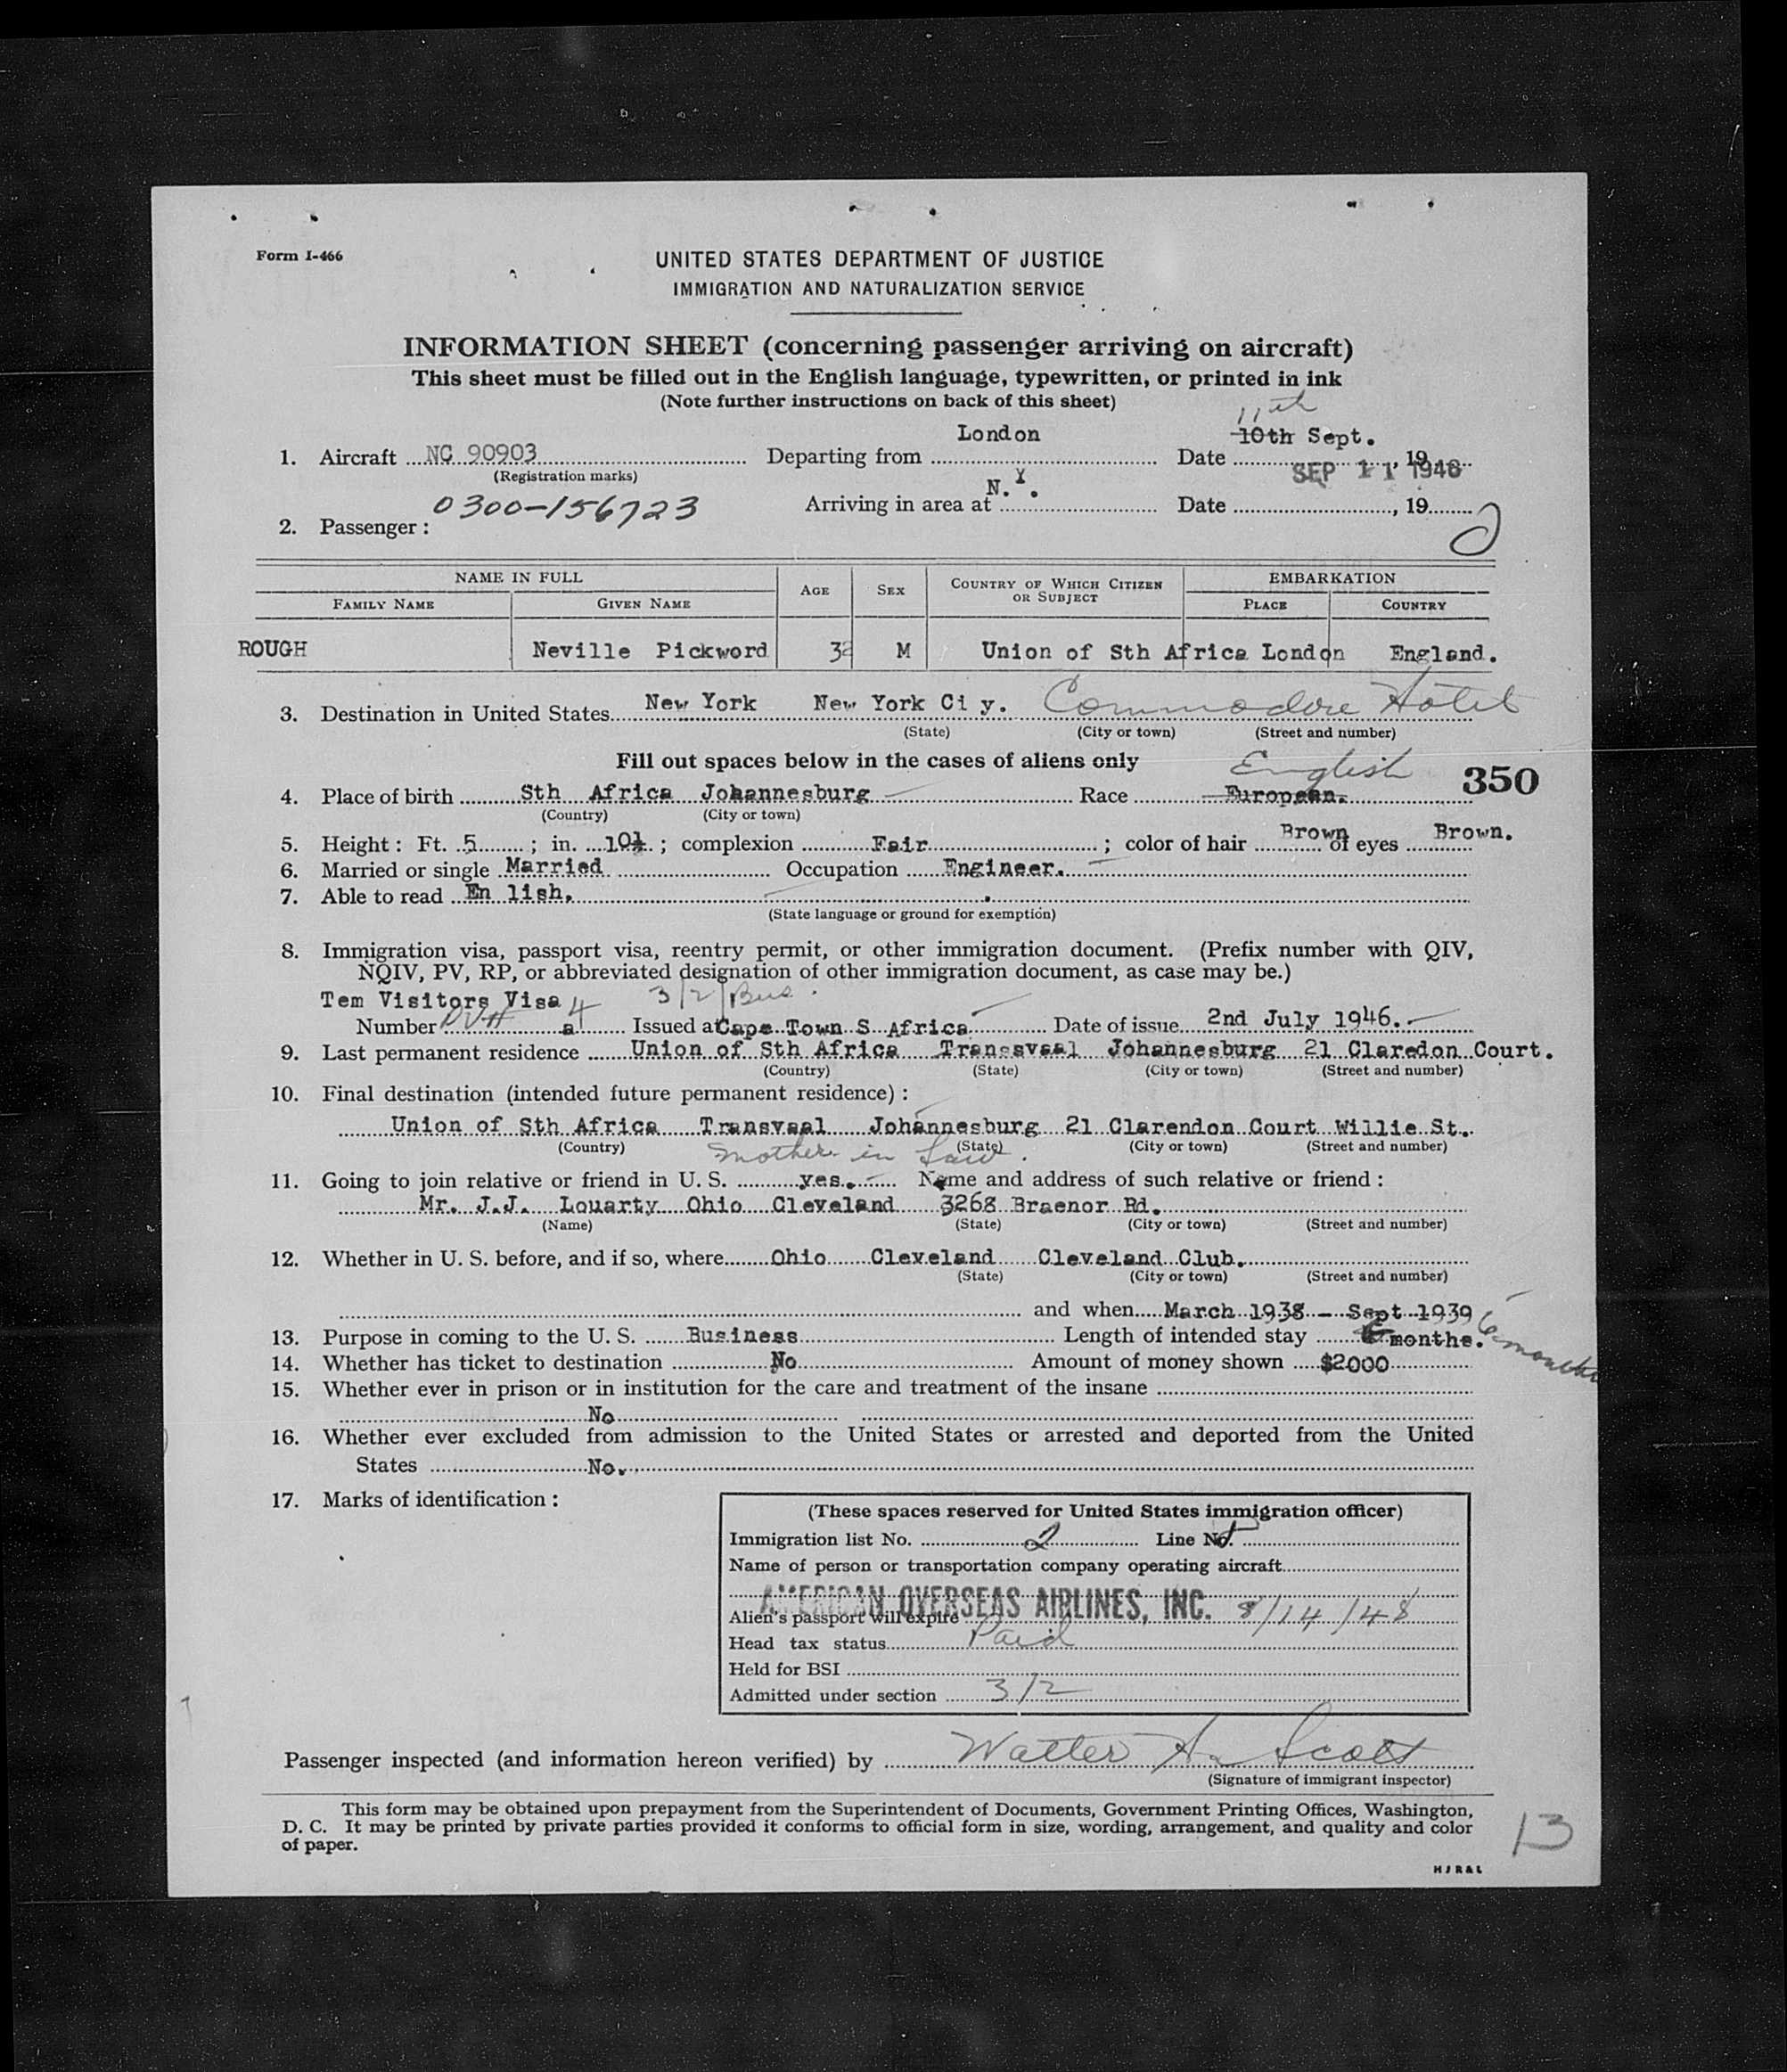 Form I-466
UNITED STATES DEPARTMENT OF JUSTICE
IMMIGRATION AND NATURALIZATION SERVICE
INFORMATION SHEET (concerning passenger arriving on aircraft)
This sheet must be filled out in the English language, typewritten, or printed in ink
(Note further instructions on back of this sheet)
11th
London 10th Sept.
1. Aircraft NC 90903 Departing from Date , 19
(Registration marks) SEP 11 1946
N. Y.
0300-156723 Arriving in area at Date , 19
2. Passenger :
NAME IN FULL AGE SEX COUNTRY OF WHICH CITIZEN OR SUBJECT EMBARKATION
FAMILY NAME GIVEN NAME PLACE COUNTRY
ROUGH Neville Pickword 32 M Union of Sth Africa London England.
3. Destination in United States New York New York Ci y. Commodore Hotel
(State) (City or town) (Street and number)
Fill out spaces below in the cases of aliens only English 350
4. Place of birth Sth Africa Johannesburg Race European.
(Country) (City or town)
5. Height : Ft. 5 ; in. 10½ ; complexion Fair ; color of hair Brown of eyes Brown.
6. Married or single Married Occupation Engineer.
7. Able to read En lish.
(State language or ground for exemption)
8. Immigration visa, passport visa, reentry permit, or other immigration document. (Prefix number with QIV,
NQIV, PV, RP, or abbreviated designation of other immigration document, as case may be.)
Tem Visitors Visa 4 3/2/Bus.
Number a Issued at Cape Town S Africa Date of issue 2nd July 1946.
9. Last permanent residence Union of Sth Africa Transvaal Johannesburg 21 Claredon Court.
(Country) (State) (City or town) (Street and number)
10. Final destination (intended future permanent residence) :
Union of Sth Africa Transvaal Johannesburg 21 Clarendon Court Willie St.
(Country) (State) (City or town) (Street and number)
Mother in Law.
11. Going to join relative or friend in U. S. yes. Name and address of such relative or friend :
Mr. J.J. Louarty Ohio Cleveland 3268 Braenor Rd.
(Name) (State) (City or town) (Street and number)
12. Whether in U. S. before, and if so, where Ohio Cleveland Cleveland Club.
(State) (City or town) (Street and number)
and when March 1938 - Sept 1939
13. Purpose in coming to the U. S. Business Length of intended stay months. 6 months
14. Whether has ticket to destination No Amount of money shown $2000
15. Whether ever in prison or in institution for the care and treatment of the insane
No
16. Whether ever excluded from admission to the United States or arrested and deported from the United
States No.
17. Marks of identification :
(These spaces reserved for United States immigration officer)
Immigration list No. 2 Line No.
Name of person or transportation company operating aircraft
AMERICAN OVERSEAS AIRLINES, INC.
Alien's passport will expire 8/14/48
Head tax status Paid
Held for BSI
Admitted under section 3/2
Passenger inspected (and information hereon verified) by Walter A. Scott
(Signature of immigrant inspector)
This form may be obtained upon prepayment from the Superintendent of Documents, Government Printing Offices, Washington,
D. C. It may be printed by private parties provided it conforms to official form in size, wording, arrangement, and quality and color
of paper.
13
H J R & L